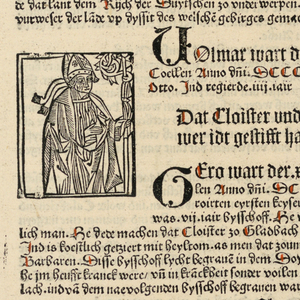 de dat lant dem Rych der Duytschen zo vnder werpen
vurweser der lãde vp dyssijt des welschẽ gebirges gema
VOlmar wart d
Coellen Anno dñi. DCCCC
Otto. Ind regierde .iiij. iair
Dat Cloister vnd
wer idt gestifft ha
GEro wart der .x
len Anno dñi. DC
roirten eyrsten keyse
was .vij. iair bysschoff. He
lich man. He dede machen dat Cloister zo Gladbach
Ind is koestlich getziert mit heyltom. as men dat zoun
Barbaren. Disse bysschoff lycht begrauen in dem Doy
He im heufft kranck were/ vñ in kranckheit sonder voilen
lach. ind vã dem naevolgenden bysschoff begrauen war